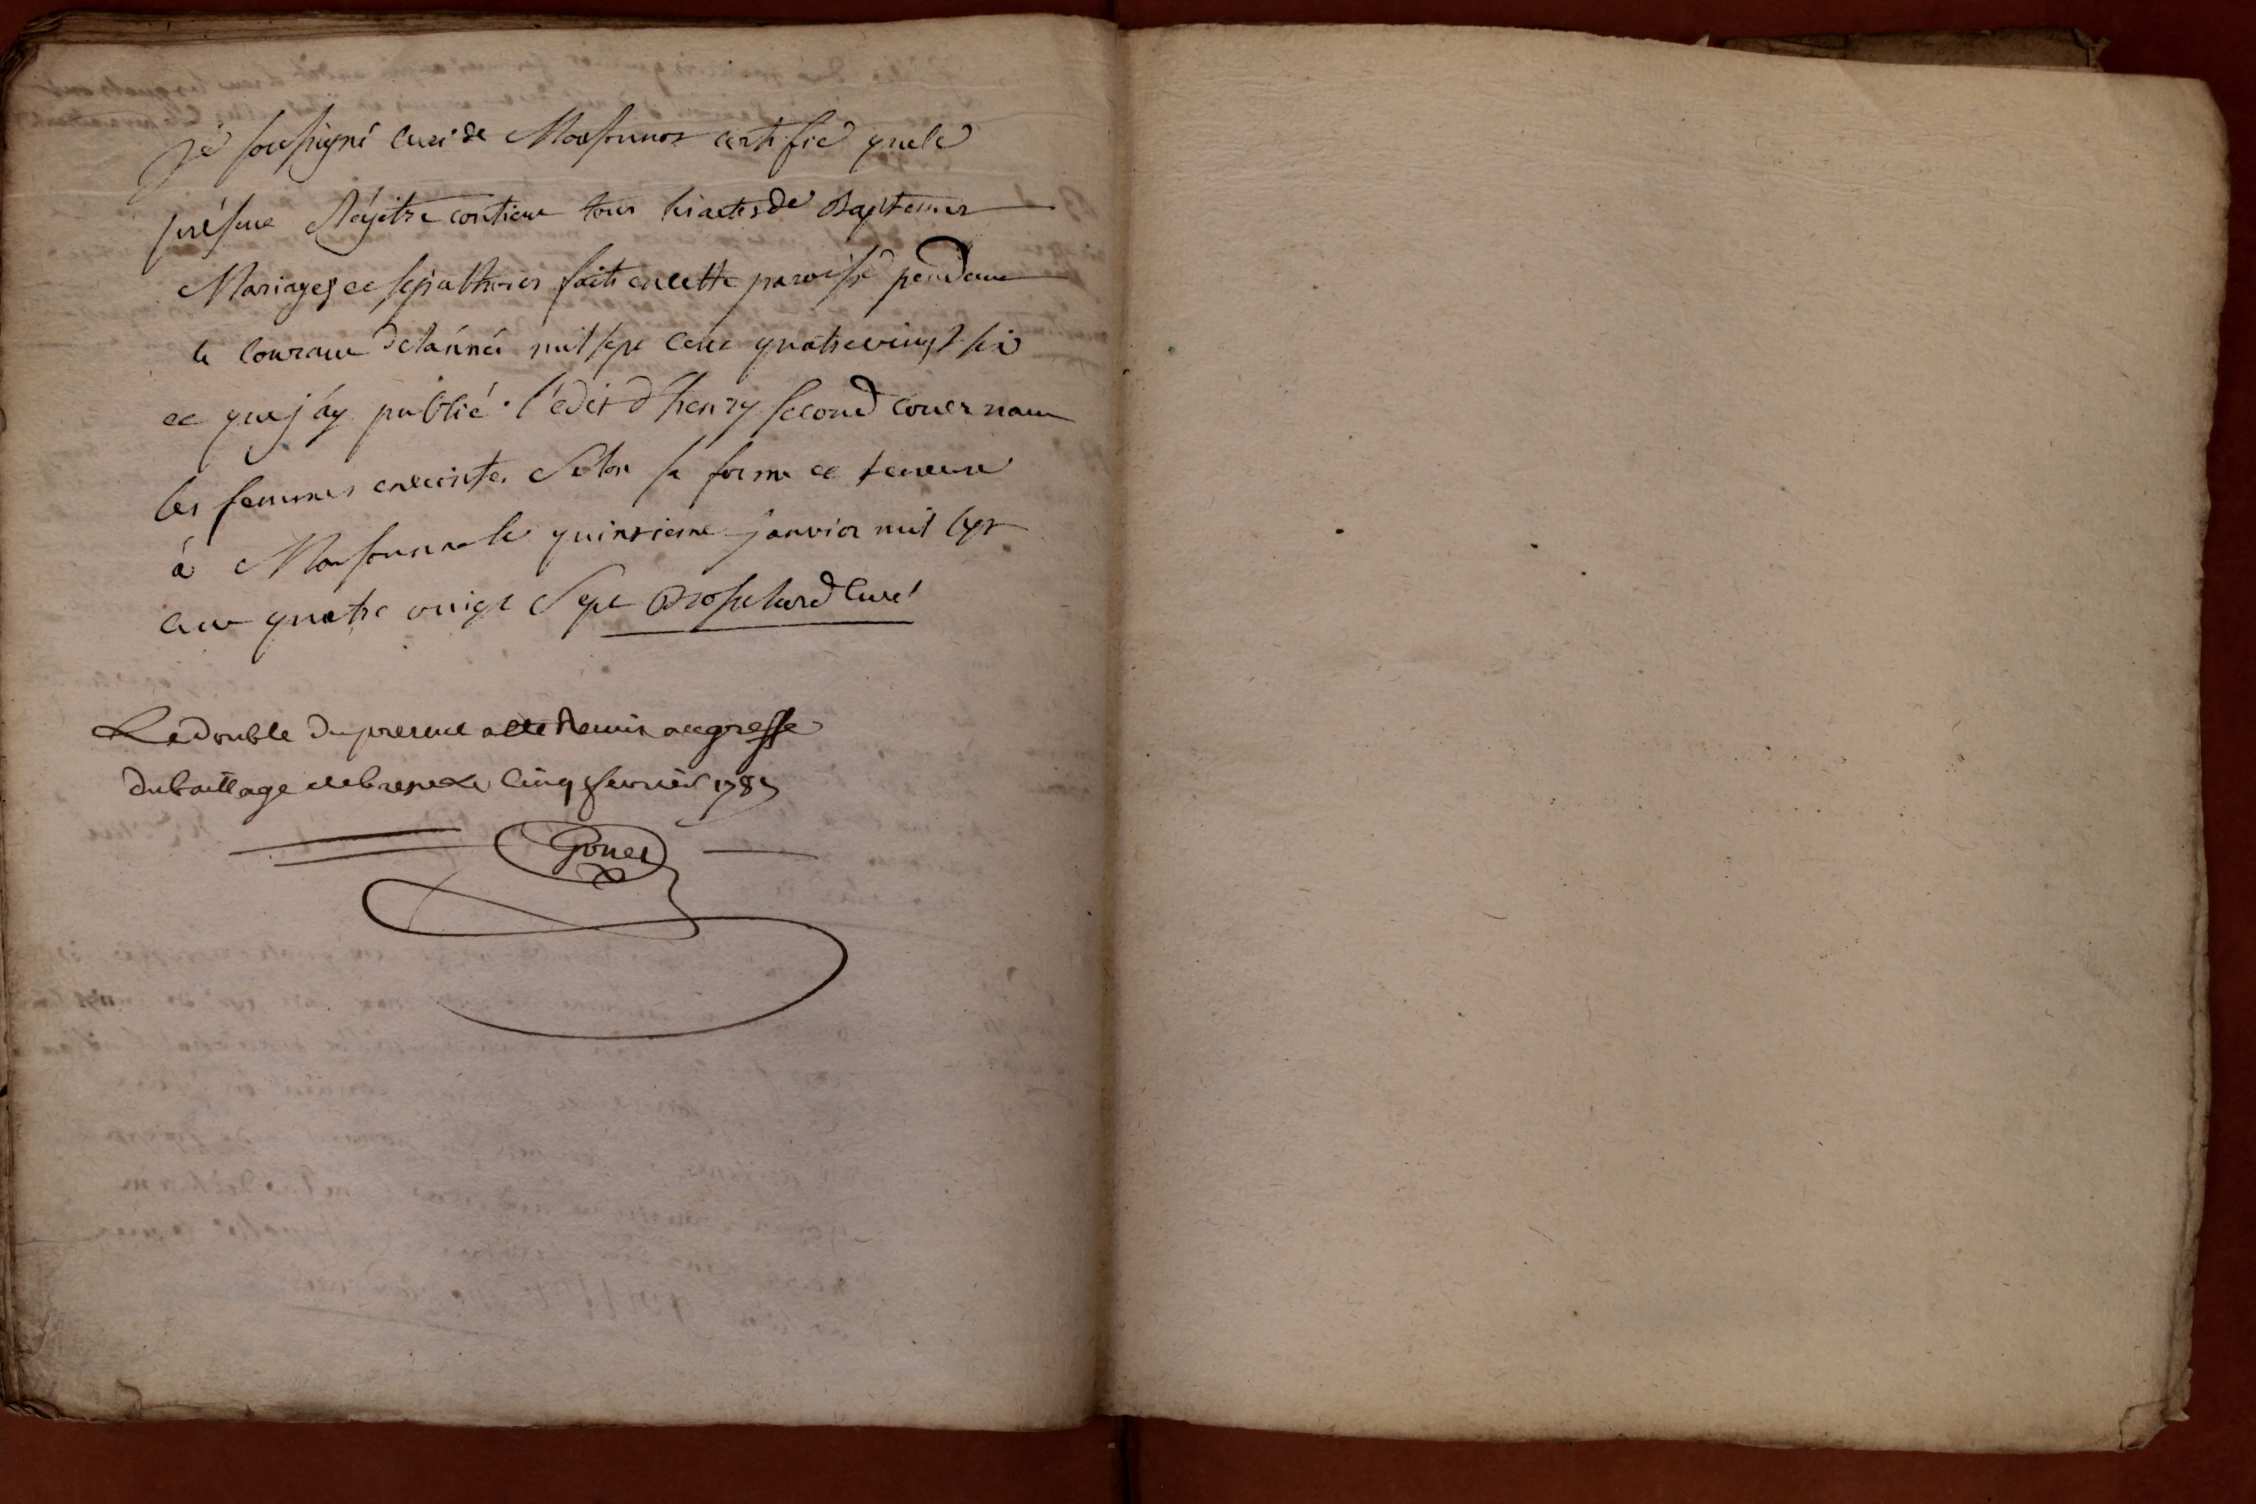 Je soussigné curé de Monsonnez certifie que le
présent Régitre contient tous les actes de Baptemes
Mariages et sepultures faits en cette paroisse pendant
le Courant de lánnée mil sept cent quatre vingt six
et que j'áy publié l'édit d'henry second concernant
les femmes enceintes Selon sa forme et teneure
á le quinsieme janvier mil sept
cent quatre vingt Sept Curé
Le double du present a ete Remis au greffe
du baillage de le Cinq fevrier 1787